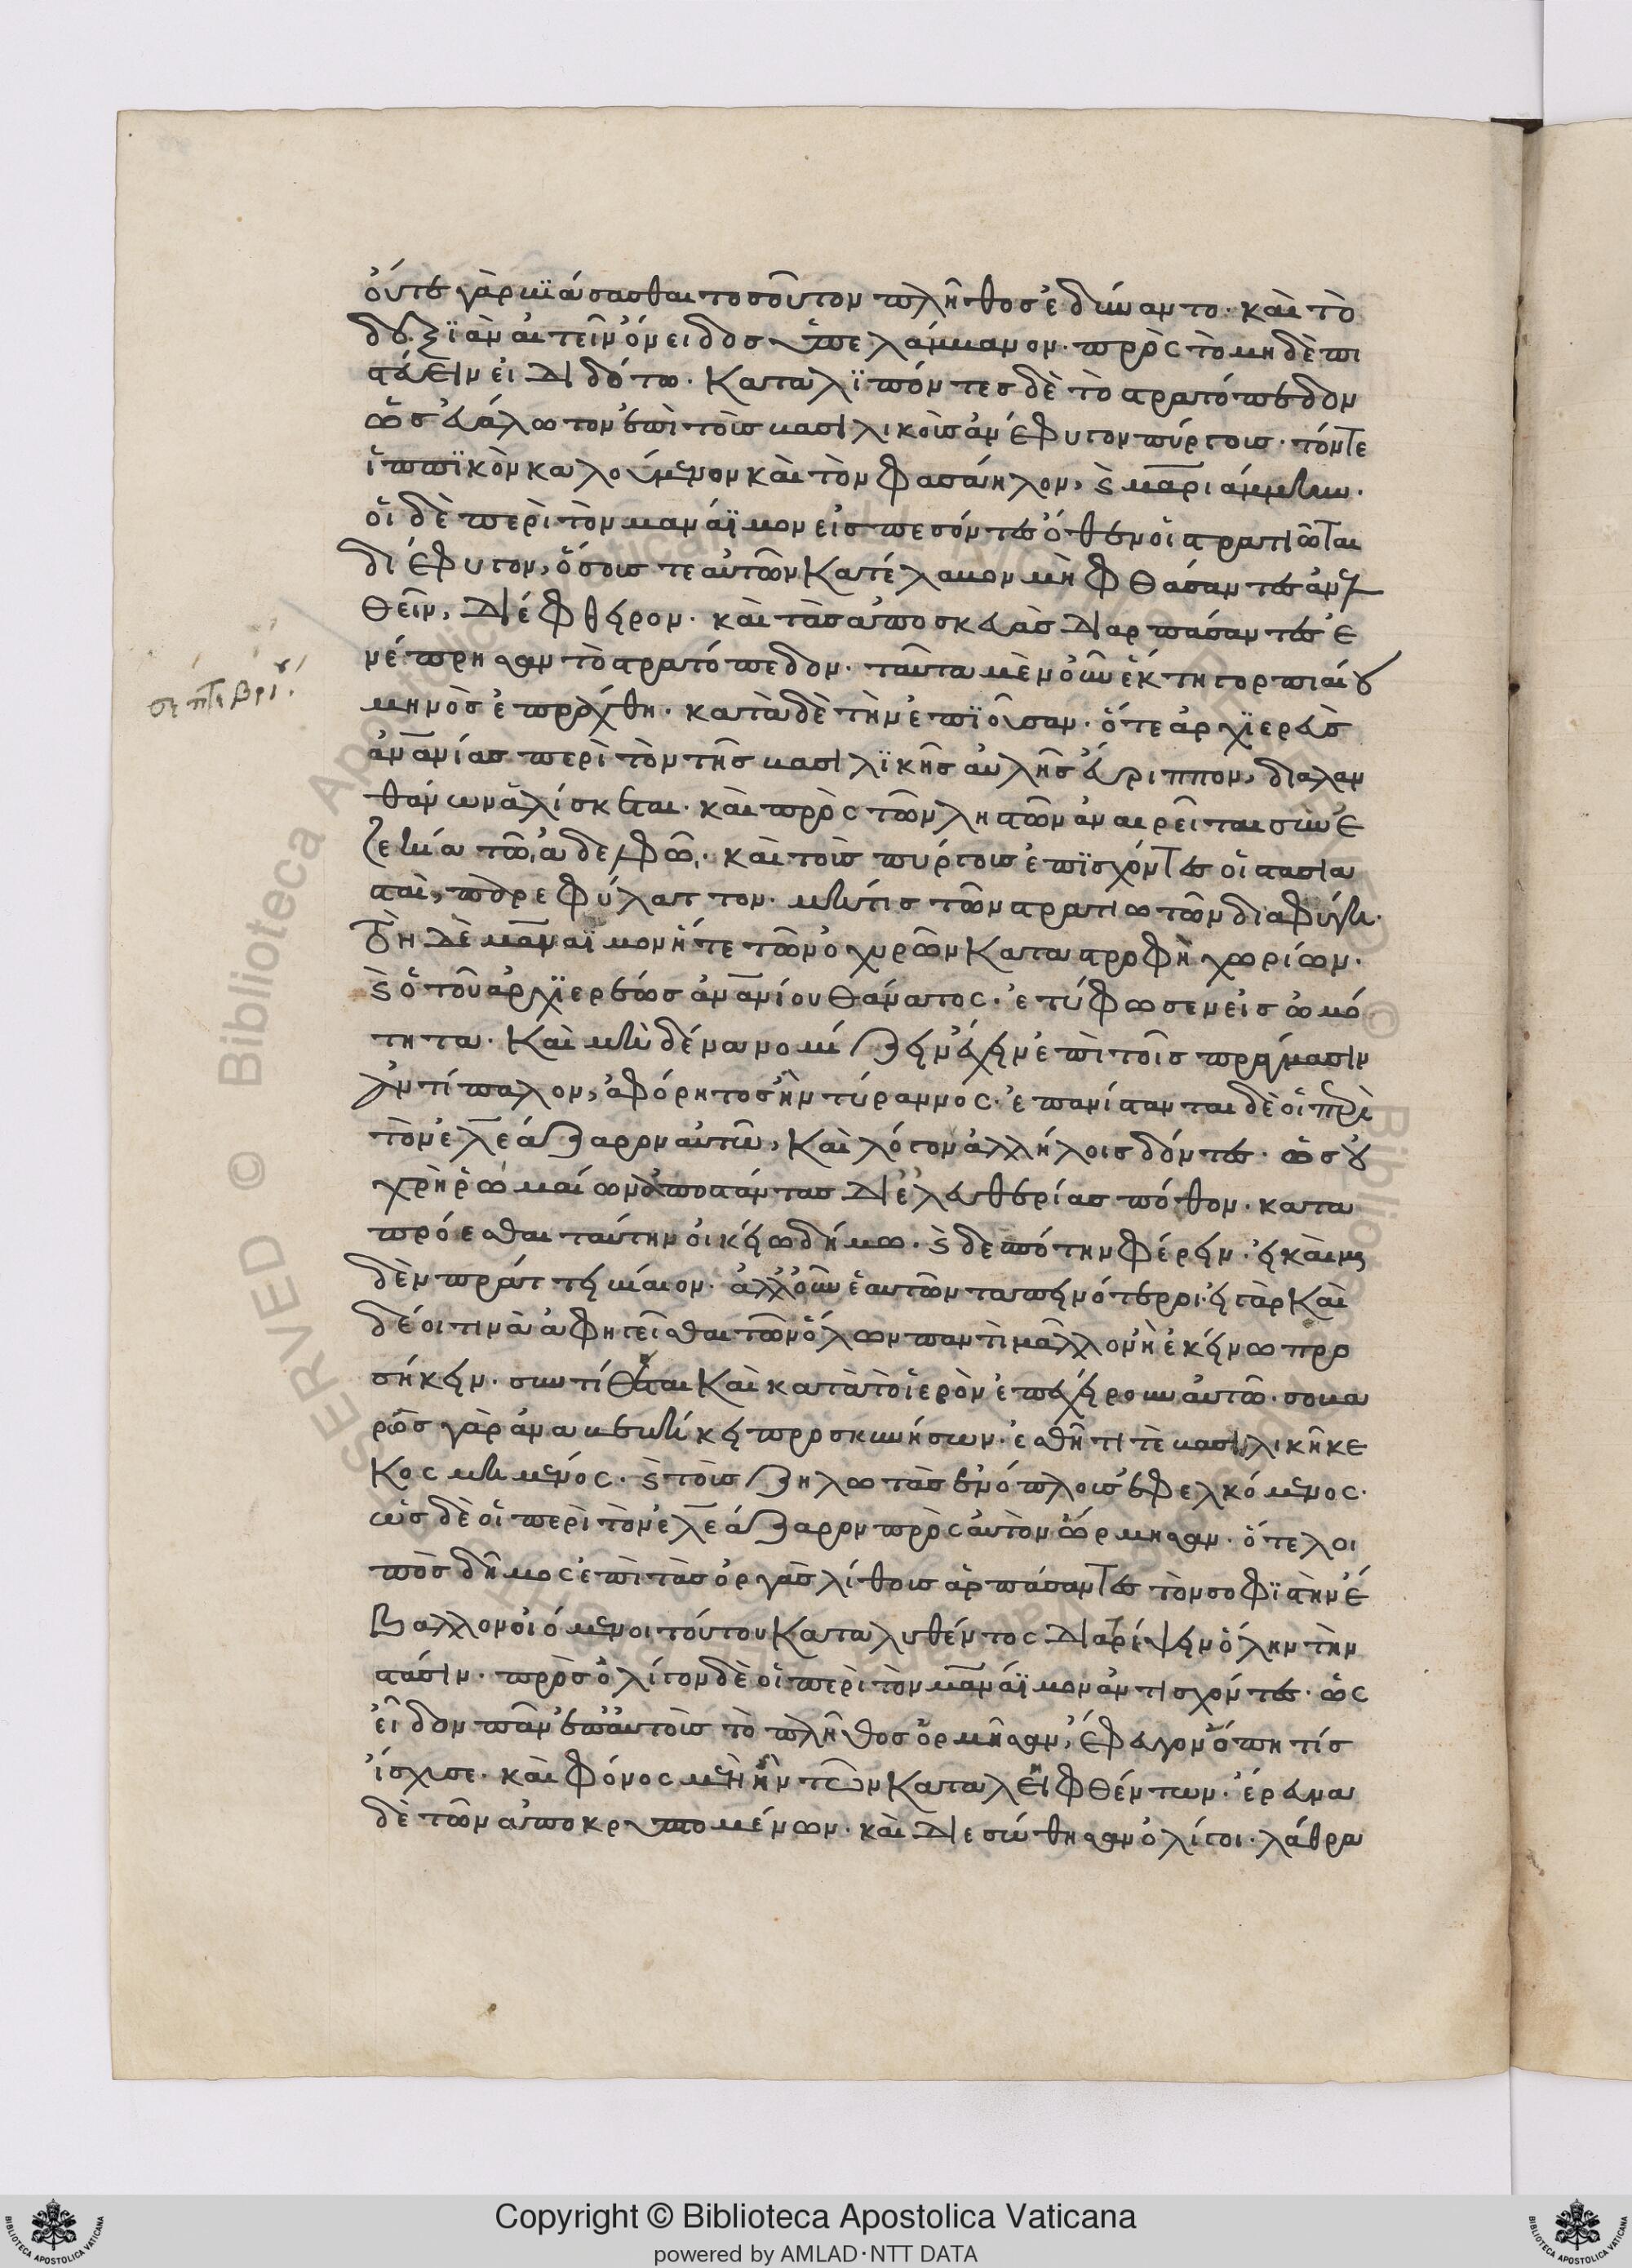 οὔτε γὰρ βιάσασθαι τοσοῦτον πλῆθος ἐδύναντο· καὶ τὸ
δεξιὰν αἰτεῖν ὄνειδος ὑπελάμβανον· πρὸς τὸ μηδὲ πι
στεύειν εἰ διδοῖτο. Καταλιπόντες δὲ τὸ στρατόπεδον
ὡς εὐάλωτον ἐπὶ τοὺς βασιλικοὺς ἀνέφυγον πύργους· τόν τε
ἱππικὸν καλούμενον καὶ τὸν φασάηλον, καὶ μαριάμμην.
οἱ δὲ περὶ τὸν μαναΐμον εἰσπεσόντες ὅθεν οἱ στρατιῶται
διέφυγον, ὅσους τε αὐτῶν κατέλαβον μὴ φθάσαντας ἀνελ
θεῖν, διέφθειρον· καὶ τὰς ἀποσκευὰς διαρπάσαντες ἐ
νέπρησαν τὸ στρατόπεδον. ταῦτα μὲν οὖν ἕκτη γορπιαίου
μηνὸς ἐπράχθη. κατὰ δὲ τὴν ἐπϊοῦσαν· ὅ τε ἀρχϊερεὺς
ἀνανίας περὶ τὸν τῆς βασιλϊκῆς αὐλῆς εὔριππον, διαλαν
θάνων ἁλίσκεται· καὶ πρὸς τῶν ληστῶν ἀναιρεῖται σὺν ἐ
ζεκία τῶ ἀδελφῶ. καὶ τοὺς πύργους ἐπϊσχόντες οἱ στασια
σταὶ, παρεφύλαττον. μή τις τῶν στρατιωτῶν διαφύγη.
τὸν δὲ μαναΐμον ἥ τε τῶν ὀχυρῶν καταστροφὴ χωρίων.
καὶ ὁ τοῦ ἀρχϊερέως ἀνανίου θάνατος· ἐτύφωσεν εἰς ὠμό
τητα. Καὶ μηδένα νομίζων ἔχειν ἐπὶ τοῖς πράγμασιν
ἀντίπαλον, ἀφόρητος ἦν τύραννος· ἐπανίστανται δὲ οἱ περὶ
τὸν ἐλεάζαρον αὐτῶ, Καὶ λόγον ἀλλήλοις δόντες· ὡς οὐ
χρὴ ῥωμαίων ἀποστάντας δι' ἐλευθερίας πόθον· κατα
προέσθαι ταύτην οἰκείω δήμω. καὶ δεσπότην φέρειν· εἰ καὶ μη
δὲν πράττει βίαιον· ἀλλ' οὖν ἑαυτῶν ταπεινότερον· εἰ γὰρ Καὶ
δέοι τινὰ ἀφηγεῖσθαι τῶν ὅλων παντὶ μᾶλλον ἢ ἐκείνω προ
σήκειν· συντίθενται Καὶ κατὰ τὸ ἱερὸν ἐπεχείρουν αὐτῶ· σοβα
ρὸς γὰρ ἀναβεβήκει προσκυνήσων· ἐσθῆτί τε βασιλικῆ κε
κοσμημένος. καὶ τοὺς ζηλωτὰς ἐνόπλους ἐφελκόμενος.
ὡς δὲ οἱ περὶ τὸν ἐλεάζαρον πρὸς αὐτὸν ὥρμησαν· ὅ τε λοι
πὸς δῆμος ἐπὶ τὰς ὀργὰς λίθους ἁρπάσαντες τὸν σοφϊστὴν ἔ
βαλλον οἰόμενοι τούτου καταλυθέντος διατρέψειν ὅλην τὴν
στάσιν· πρὸς ὀλίγον δὲ οἱ περὶ τὸν μαναΐμον ἀντισχόντες· ὡς
εἶδον πᾶν ἐπ' αὐτοὺς τὸ πλῆθος ὁρμῆσαν, ἔφευγον ὅπη τίς
ἴσχυσε· καὶ φόνος μὲν ἦν τῶν καταλειφθέντων· ἔρευνα
δὲ τῶν ἀποκρυπτομένων. καὶ διεσώθησαν ὀλίγοι· λάθρα